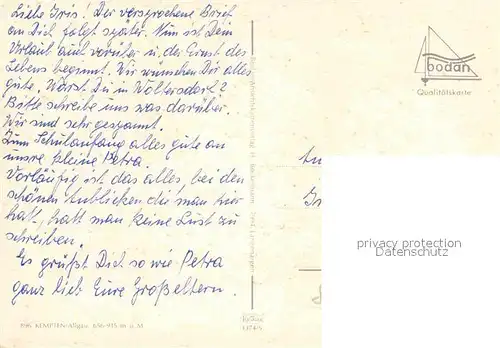 Liebe Iris! Der versprochene Brief
an Dich folgt später. Nun ist Dein
Urlaub auch vorüber u. der Ernst des
Lebens beginnt. Wir wünschen Dir alles
gute. Warst Du in Woltersdorf?
Bitte schreibe uns was darüber.
Wir sind sehr gespannt.
Zum Schulanfang alles gute an
unsre kleine Petra.
Vorläufig ist das alles, bei den
schönen Anblicken die man hier
hat, hat man keine Lust zu
schreiben.
Es grüßt Dich so wie Petra
ganz lieb Eure Großeltern.
KEMPTEN/Allgäu
bodan
Qualitätskarte
privacy protection